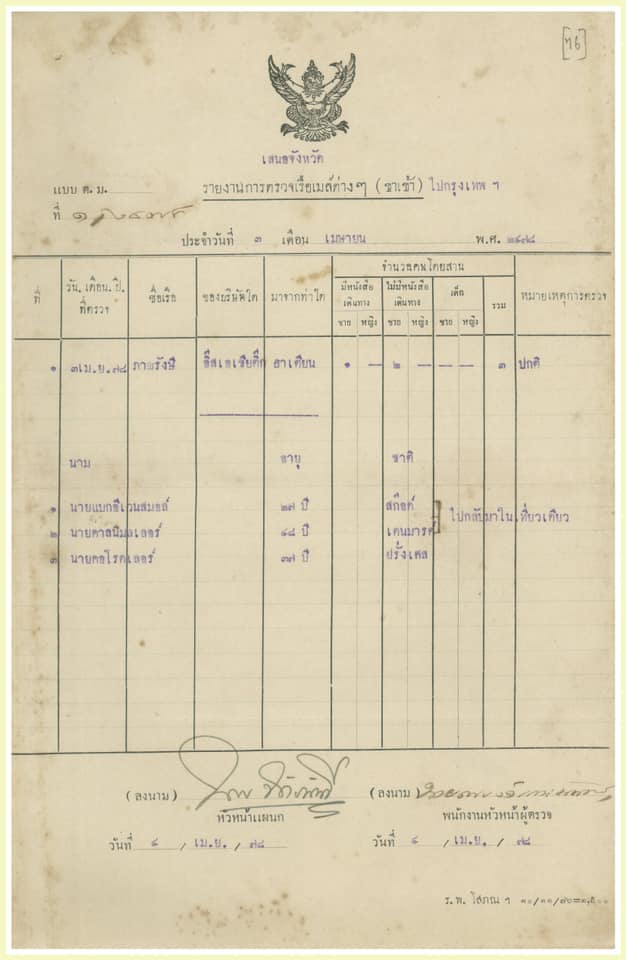 [๖]
เสนอจังหวัด
แบบ ต.ม.
รายงานการตรวจเรือเมล์ต่างๆ (ขาเข้า) ไปกรุงเทพ ฯ
ที่ ๑
ประจำวันที่ ๓ เดือน เมษายน พ.ศ. ๒๔๗๘
ที่ วัน, เดือน, ปี, ที่ตรวจ ชื่อเรือ ของบริษัทใด มาจากท่าใด จำนวนคนโดยสาร หมายเหตุการตรวจ
มีหนังสือเดินทาง ไม่มีหนังสือเดินทาง เด็ก รวม
ชาย หญิง ชาย หญิง ชาย หญิง
๑ ๓เม.ย.๗๘ ภาณรังษี อิสเอเซียติ๊ก ฮาเตียน ๑ — ๒ — — — ๓ ปกติ
นาม อายุ ชาติ
๑ นายแบกอีเวนสมอล์ ๒๗ ปี สก๊อต์
๒ นายคาลนิมลเลอร์ ๔๘ ปี เดนมารค
ไปกลับมาในเที่ยวเดียว
๓ นายคอโรคเลอร์ ๓๗ ปี ฝรั่งเศส
(ลงนาม) (ลงนาม)
หัวหน้าแผนก พนักงานหัวหน้าผู้ตรวจ
วันที่ ๔ / เม.ย. / ๗๘ วันที่ ๔ / เม.ย. / ๗๘
ร.พ. โสภณ ฯ